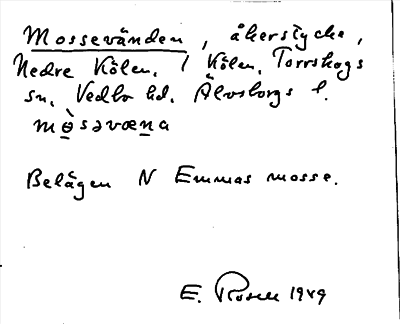 Mossevänden, åkerstycke,
Nedre Kölen, 1 Kölen, Torrskogs
sn, Vedbo hd. Älvsborgs l.
mòsəvæna
Belägen N Emmas mosse.
E. Rosell 1949